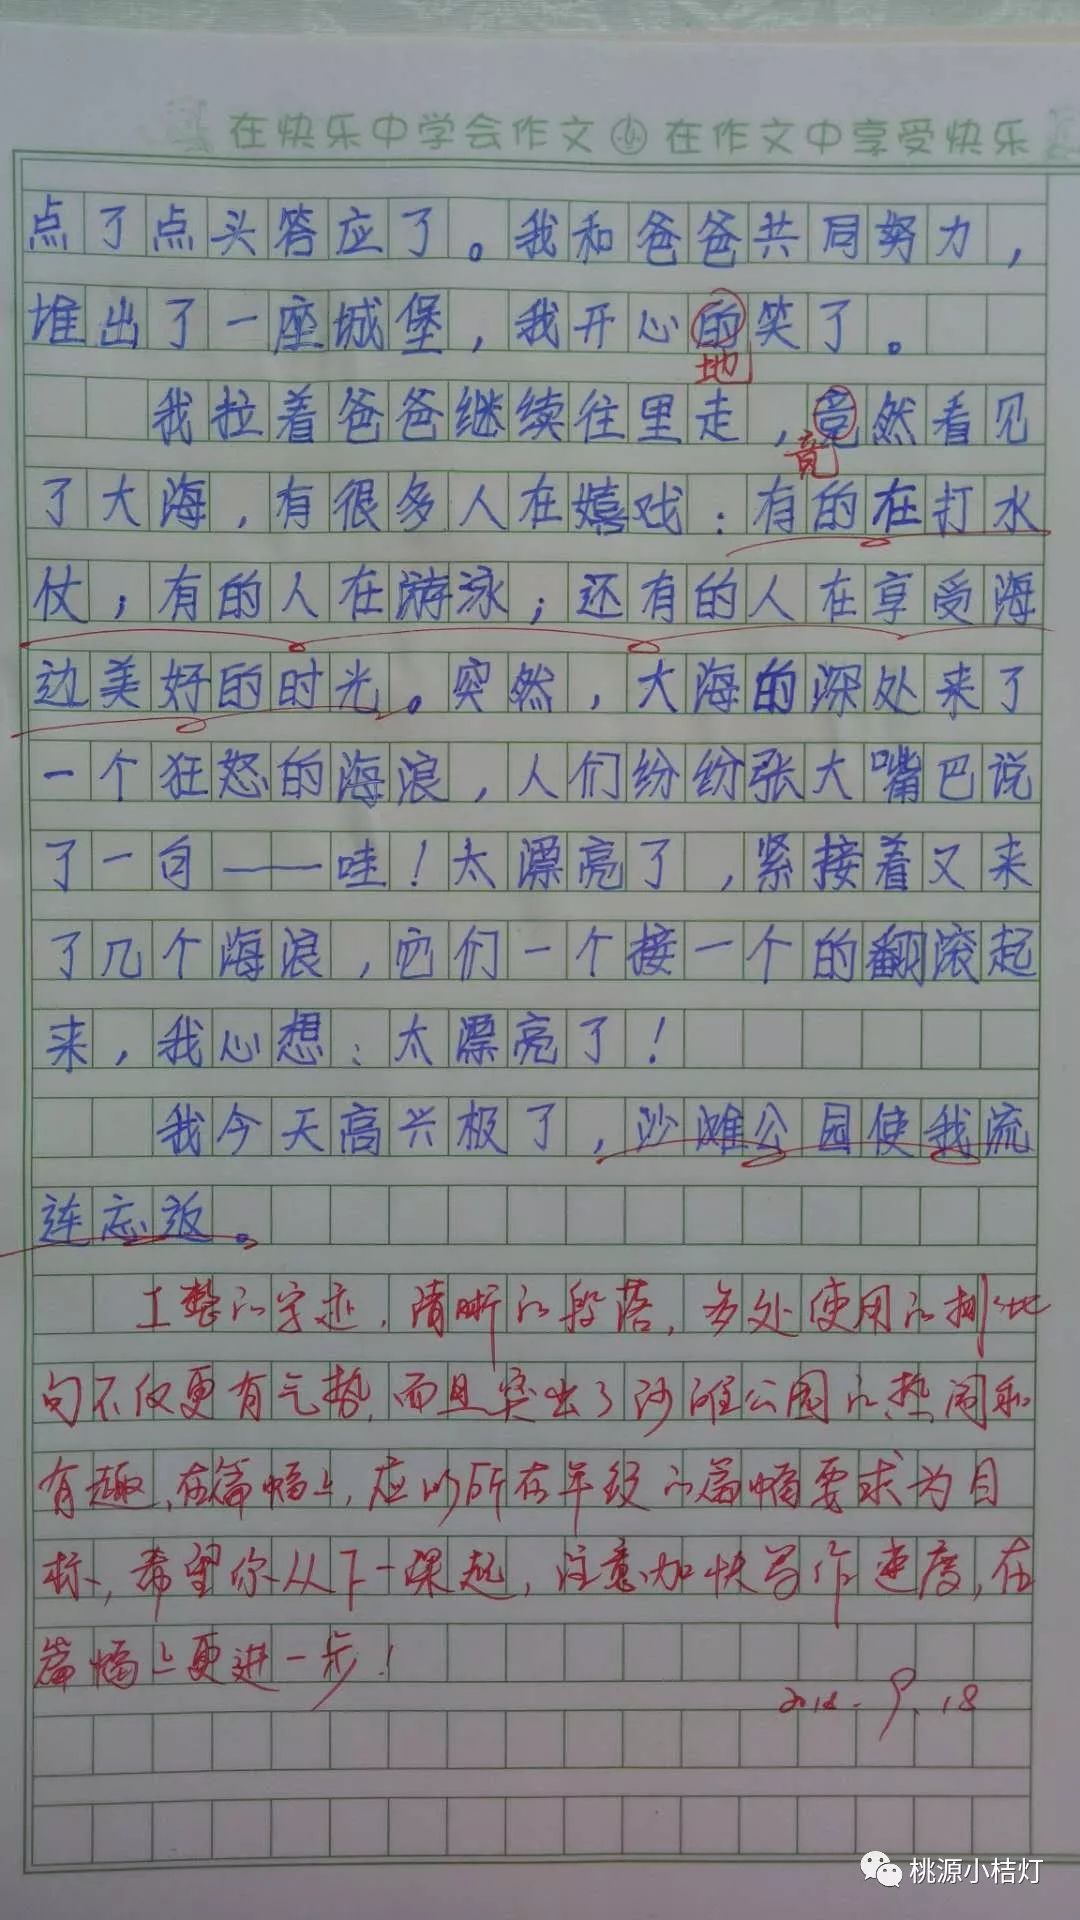 在快乐中学会作文 在作文中享受快乐
点了点头答应了。我和爸爸共同努力，
堆出了一座城堡，我开心的笑了。
地
我拉着爸爸继续往里走，竟然看见
竟
了大海，有很多人在嬉戏：有的在打水
仗，有的人在游泳；还有的人在享受海
边美好的时光。突然，大海的深处来了
一个狂怒的海浪，人们纷纷张大嘴巴说
了一句——哇！太漂亮了，紧接着又来
了几个海浪，它们一个接一个的翻滚起
来，我心想：太漂亮了！
我今天高兴极了，沙滩公园使我流
连忘返。
工整的字迹，清晰的段落，多处使用的排比
句不仅更有气势，而且突出了沙滩公园的热闹和
有趣，在篇幅上，应以所在年级的篇幅要求为目
标，希望你从下一课起，注意加快写作速度，在
篇幅上更进一步！
2018.9.18
桃源小桔灯